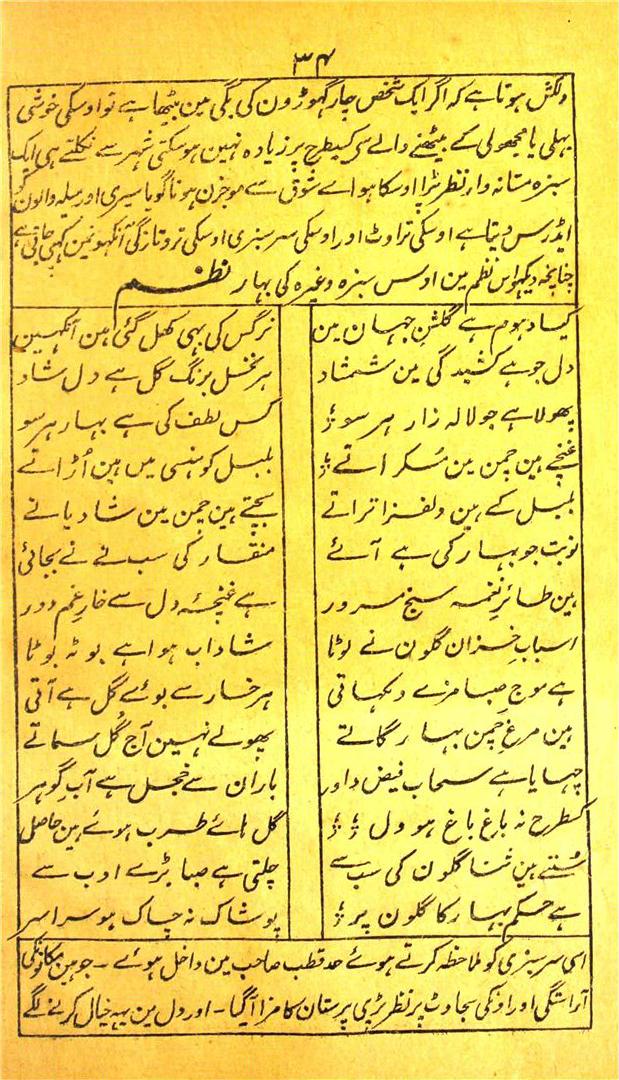 ۳۴
دلکش ہوتا ہے کہ اگر ایک شخص چار گہوڑون کی بگی مین بیٹھا ہے تو اوسکی خوشی
بہلی یا مجھولی کے بیٹھنے والے سے کسیطرح پر زیادہ نہین ہوسکتی شہر سے نکلتے ہی ایک
سبزہ مستانہ وار نظر پڑا اوسکا ہوا سے شوق سے موجزن ہونا گویا سیری اور میلہ والون کو
ایڈرس دیتا ہے اوسکی تراوٹ اور اوسکی سرسبزی اوسکی تروتازگی آنکھونمین کہبی جاتی ہے
چنانچہ دیکہو اس نظم مین اوس سبزہ وغیرہ کی بہار نظم
کیا دہوم ہے گلشن جہان مین نرگس کی بہی کھل گئی ہین آنکہین
دل جو ہے کشیدگی مین شمشاد ہر نخل برنگ گل ہے دل شاد
پھولا ہے جو لالہ زار ہر سو کس لطف کی ہے بہار ہر سو
غنچے ہین چمن مین مسکراتے بلبل کو ہنسی میں ہین اُڑاتے
بلبل کے ہین دلفزا ترانے بجتے ہین چمن مین شادیانے
نوبت جو بہار کی ہے آئے منقار کی سب نے نے بجائی
ہین طائر نغمہ سنج مسرور ہے غنچۂ دل سے خار غم دور
اسبابِ خزان گلون نے لوٹا شاداب ہوا ہے بوٹہ بوٹا
ہے موج صبا مزے دکہاتی ہر خار سے بوئے گل ہے آتی
ہین مرغ چمن بہار گاتے پھولے نہین آج گُل سماتے
چہایا ہے سحاب فیض داور باران سے خجل ہے آبِ گوہر
کسطرح نہ باغ باغ ہو دل گل ہائے طرب ہوئے ہین حاصل
سُنتے ہین ثنا گلون کی سب سے چلتی ہے صبا بڑے ادب سے
ہے حکم بہار کا گلون پر پوشاک نہ چاک ہو سراسر
اسی سرسبزی کو ملاحظہ کرتے ہوئے حد قطب صاحب مین داخل ہوئے - جوہین مکانونکی
آراستگی اور اونکی سجاوٹ پر نظر پڑی پرستان کا مزا آگیا - اور دل مین یہہ خیال کرنے لگے